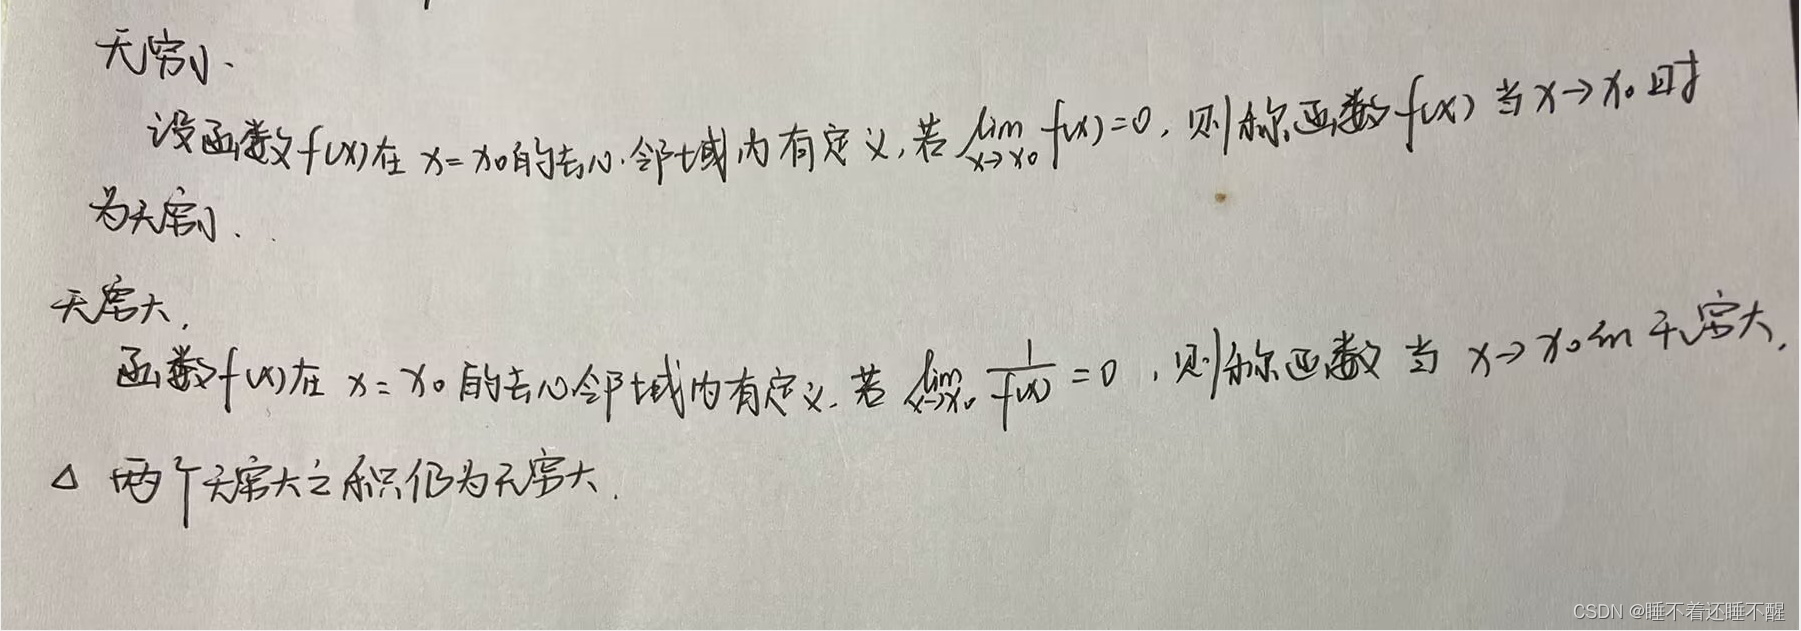 无穷小.
设函数f(x)在 x=x0的去心邻域内有定义,若 lim x→x0 f(x)=0, 则称函数f(x)当x→x0时
为无穷小.
无穷大.
函数f(x)在 x=x0 的去心邻域内有定义.若 lim x→x0 1/f(x) =0,则称函数 当 x→x0 无穷大.
△ 两个无穷大之积仍为无穷大.
CSDN @睡不着还睡不醒